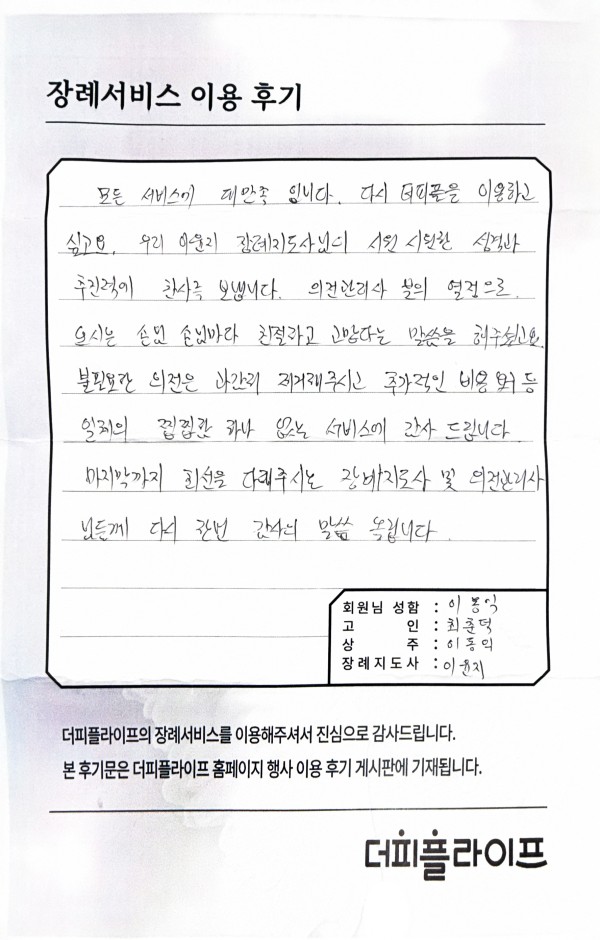 장례서비스 이용 후기
모든 서비스에 대만족 입니다. 다시 더피플을 이용하고
싶고요. 우리 이윤지 장례지도사님의 시원 시원한 성격과
추진력에 찬사를 보냅니다. 의전관리사 분의 열정으로.
오시는 손님 손님마다 친절하고 고맙다는 말씀을 해주셨고요.
불필요한 의전은 과감히 제거해주시고 추가적인 비용 요구 등
일체의 찝찝함 하나 없는 서비스에 감사 드립니다.
마지막까지 최선을 다해주시는 장례지도사 및 의전관리사
님들께 다시 한번 감사의 말씀 올립니다.
회원님 성함 : 이동익
고 인 : 최춘덕
상 주 : 이동익
장례지도사 : 이윤지
더피플라이프의 장례서비스를 이용해주셔서 진심으로 감사드립니다.
본 후기문은 더피플라이프 홈페이지 행사 이용 후기 게시판에 기재됩니다.
더피플라이프